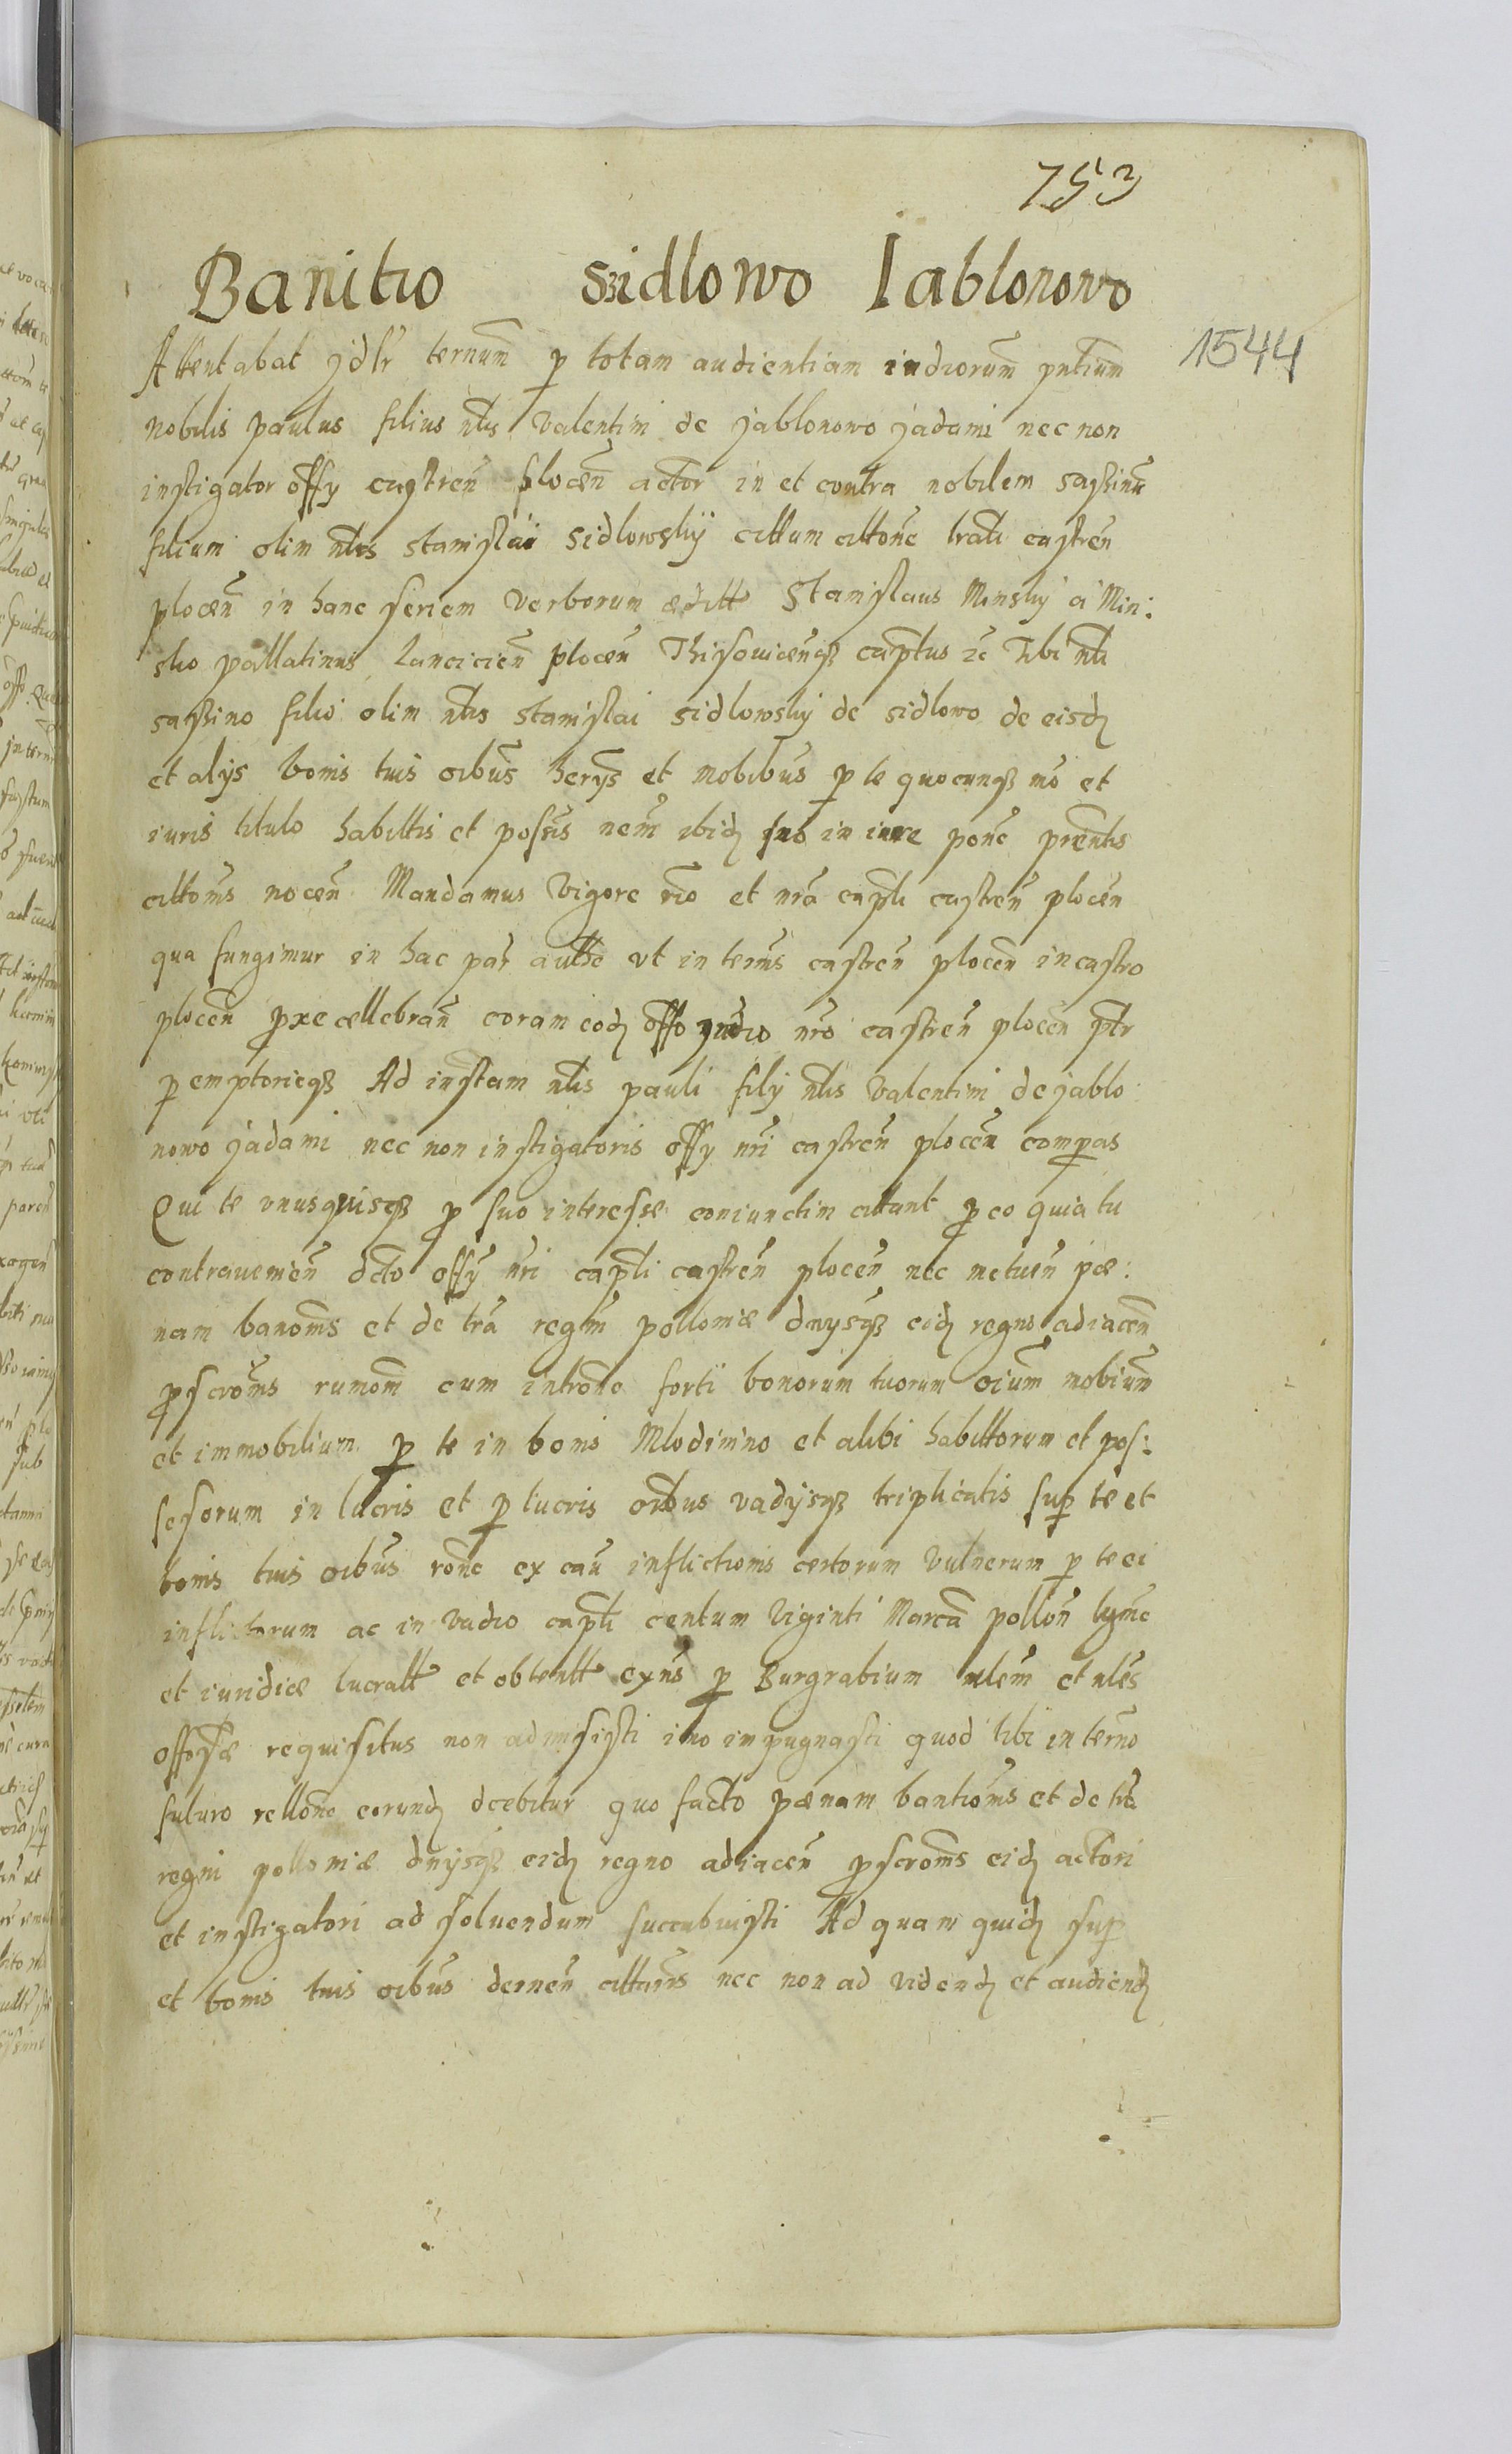 753
Banitio Szidlowo Iablonowo
1544
Attentabat jdlr ternum p totam audientiam iudiorum pntium
Nobilis paulus filius nlis Valentini de jablonowo jadami nec non
instigator offy castren plocen actor in et contra nobilem Sassinu
filium olim nlis Stanislai Sidlowskij cittum cittone lrali castren
plocen in hanc seriem verborum æditt Stanislaus Minsky a Min:
sko pallatinus Lancicien plocen Thisouicenqz captus zc Tibi nli
sassino filio olim nlis Stanislai Sidlowsky de Sidlowo de eisd
et alys bonis tuis oibus herys et mobibus p te quocunqz mo et
iuris titulo habittis et possis nem ibid suo in iure pone prentis
cittonis nocen Mandamus Vigore rio et nra capli castren plocen
qua fungimur in hac par autte vt in termis castren plocen in castro
plocen proxe cellebran coram eod offo judio nro castren plocen ptr
p emptorieqz Ad instam nlis pauli fily nlis Valentini de jablo:
nowo jadami nec non instigatoris offy nri castren plocen comparas
Qui te vnusquisqz p suo interesse coniunctim cittant p eo quia tu
contrauenien dcto offy nri capli castren plocen nec metuen pæ:
nam banoms et de tra regni polloniæ dnysqz eid regno adiacen
proscroms rumom cum introne forti bonorum tuorum oium mobium
et immobilium p te in bonis Mlodinino et alibi habittorum et pos:
sesorum in lucris et p lucris oibus vadijsqz triplicatis sup te et
bonis tuis oibus rone ex cau inflictionis certorum vulnerum p te ei
inflictorum ac in vadio capli centum viginti Marca pollon lgme
et iuridicæ lucratt et obtentt exns p Burgrabium nlem et nles
offosæ requisitus non admisisti imo impugnasti quod tibi in termo
futuro rellone eorund docebitur quo facto pænam bantioms et de tra
regni polloniæ dnijsqz eid regno adiacen proscroms eid actori
et instigatori ad soluendum succubuisti Ad quam quid sup
et bonis tuis oibus dernen cittaris nec non ad vidend et audiend